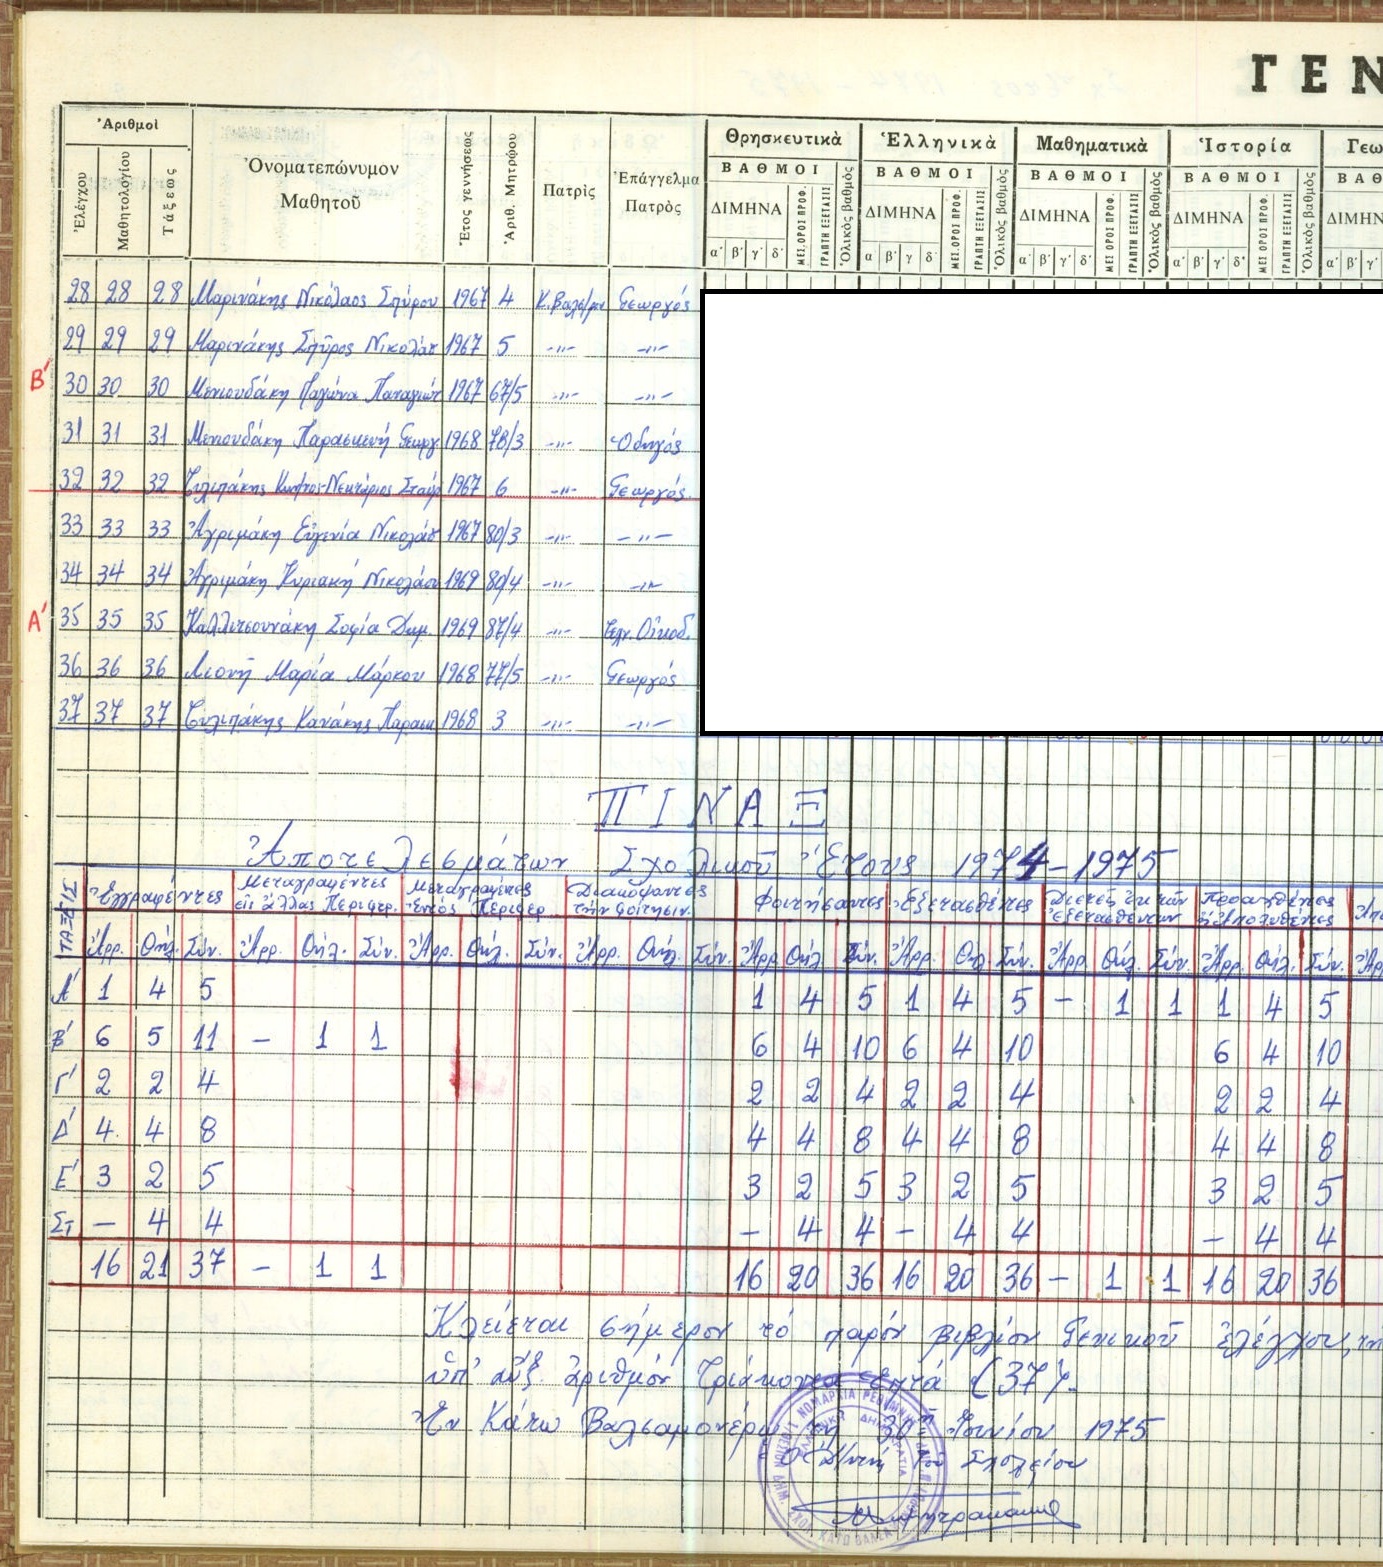 ΓΕΝ
Ἀριθμοὶ
Ἐλέγχου Μαθητολογίου Τάξεως Ὀνοματεπώνυμον Μαθητοῦ Ἔτος γεννήσεως Ἀριθ. Μητρῴου Πατρὶς Ἐπάγγελμα Πατρὸς
Θρησκευτικὰ Ἑλληνικὰ Μαθηματικὰ Ἱστορία Γεω
ΒΑΘΜΟΙ ΒΑΘΜΟΙ ΒΑΘΜΟΙ ΒΑΘΜΟΙ ΒΑΘ
ΔΙΜΗΝΑ ΜΕΣ.ΟΡΟΣ ΠΡΟΦ. ΓΡΑΠΤΗ ΕΞΕΤΑΣΙΣ Ὁλικὸς βαθμὸς ΔΙΜΗΝΑ ΜΕΣ.ΟΡΟΣ ΠΡΟΦ. ΓΡΑΠΤΗ ΕΞΕΤΑΣΙΣ Ὁλικὸς βαθμὸς ΔΙΜΗΝΑ ΜΕΣ.ΟΡΟΣ ΠΡΟΦ. ΓΡΑΠΤΗ ΕΞΕΤΑΣΙΣ Ὁλικὸς βαθμὸς ΔΙΜΗΝΑ ΜΕΣ.ΟΡΟΣ ΠΡΟΦ. ΓΡΑΠΤΗ ΕΞΕΤΑΣΙΣ Ὁλικὸς βαθμὸς ΔΙΜΗΝ
α' β' γ' δ' α' β' γ δ' α' β' γ' δ' α' β' γ' δ' α' β' γ'
28 28 28 Μαρινάκης Νικόλαος Σπύρου 1967 4 Γεωργός
29 29 29 Μαρινάκης Σπῦρος Νικολάου 1967 5 -〃- -〃-
Β'
30 30 30 Μενιουδάκη Παγώνα Παναγιώτ 1967 67/5 -〃- -〃-
31 31 31 Μενιουδάκη Παρασκευή Γεωργ 1968 78/3 -〃- Ὁδηγός
32 32 32 Τυλιπάκης 1967 6 -〃- Γεωργός
33 33 33 Ἀγριμάκη Εὐγενία Νικολάου 1967 80/3 -〃- -〃-
34 34 34 Ἀγριμάκη Κυριακή Νικολάου 1969 80/4 -〃- -〃-
Α'
35 35 35 Καλλιτσουνάκη Σοφία Δημ. 1969 87/4 -〃-
36 36 36 Λιονῆ Μαρία Μάρκου 1968 77/5 -〃- Γεωργός
37 37 37 Τυλιπάκης Κανάκης Παρασκ 1968 3 -〃- -〃-
ΠΙΝΑΞ
Ἀποτελεσμάτων Σχολικοῦ Ἔτους 1974-1975
ΤΑΞΕΙΣ Ἐγγραφέντες Μεταγραφέντες εἰς ἄλλας Περιφερ. Μεταγραφέντες Ἐντός Περιφερ. Διακόψαντες τήν φοίτησιν Φοιτήσαντες Ἐξετασθέντες Διετεῖς ἐκ τῶν ἐξετασθέντων Προαχθέντες ἢ Ἀπολυθέντες Ἀπο
Ἄρρ. Θήλ. Σύν. Ἄρρ. Θήλ. Σύν. Ἄρρ. Θήλ. Σύν. Ἄρρ. Θήλ. Σύν. Ἄρρ. Θήλ. Σύν. Ἄρρ. Θήλ. Σύν. Ἄρρ. Θήλ. Σύν. Ἄρρ. Θήλ. Σύν. Ἄρρ
Α' 1 4 5 1 4 5 1 4 5 - 1 1 1 4 5
Β' 6 5 11 - 1 1 6 4 10 6 4 10 6 4 10
Γ' 2 2 4 2 2 4 2 2 4 2 2 4
Δ' 4 4 8 4 4 8 4 4 8 4 4 8
Ε' 3 2 5 3 2 5 3 2 5 3 2 5
Στ - 4 4 - 4 4 - 4 4 - 4 4
16 21 37 - 1 1 16 20 36 16 20 36 - 1 1 16 20 36
Κλείεται σήμερον τό παρόν βιβλίον Γενικοῦ ἐλέγχου, τήν
ὑπ' αὔξ. ἀριθμόν τριάκοντα ἑπτά (37).
Ἐν Κάτω Βαλσαμονέρῳ τῇ 30ῇ Ἰουνίου 1975
Ὁ Δ/ντής τοῦ Σχολείου